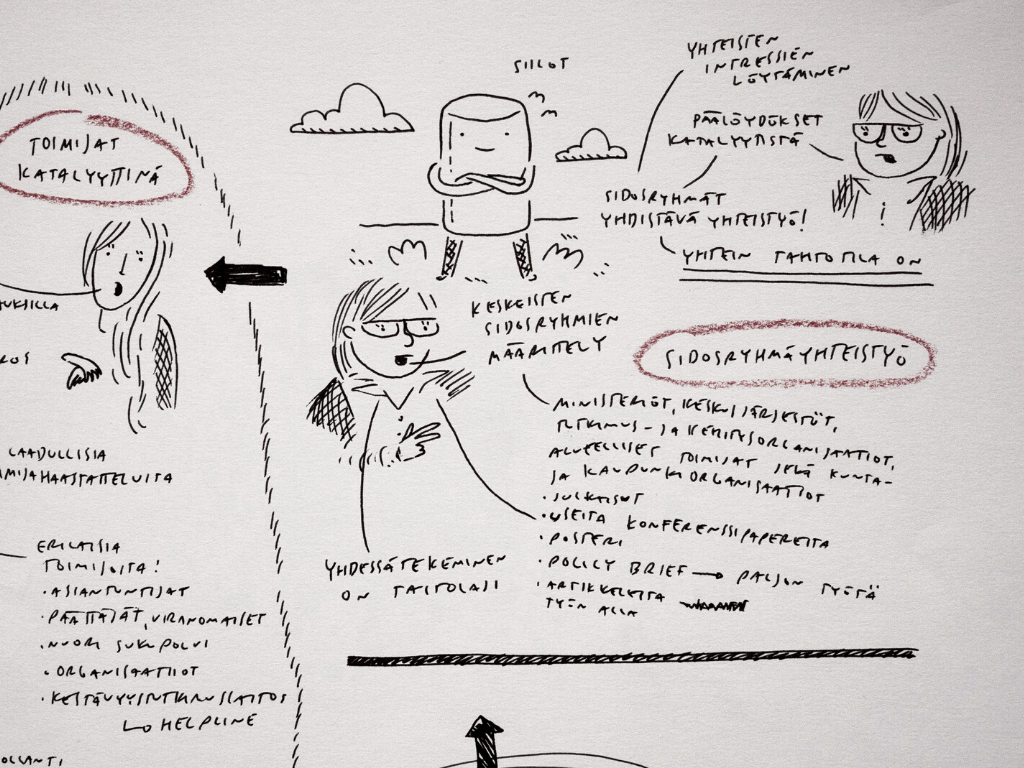 TOIMIJAT
KATALYYTTINÄ
LAADULLISIA
ERILAISIA
TOIMIJOITA!
• ASIANTUNTIJAT
• PÄÄTTÄJÄT, VIRANOMAISET
• NUORI SUKUPOLVI
• ORGANISAATIOT
• KESTÄVYYSTUTKIMUSLAITOS
↳ HELPLINE
SIILOT
YHTEISTEN
INTRESSIEN
LÖYTÄMINEN
PÄÄLÖYDÖKSET
KATALYYTISTÄ
SIDOSRYHMÄT
YHDISTÄVÄ YHTEISTYÖ!
YHTEIN TAHTOTILA ON
KESKEISTEN
SIDOSRYHMIEN
MÄÄRITELY
SIDOSRYHMÄYHTEISTYÖ
MINISTERIÖT, KESKUSJÄRJESTÖT,
TUTKIMUS- JA KEHITYSORGANISAATIOT,
ALUEELLISET TOIMIJAT SEKÄ KUNTA-
JA KAUPUNKIORGANISAATIOT
• JULKAISUT
• USEITA KONFERENSSIPAPEREITA
• POSTERI
• POLICY BRIEF → PALJON TYÖTÄ
• ARTIKKELEITA
TYÖN ALLA
YHDESSÄTEKEMINEN
ON TAITOLAJI